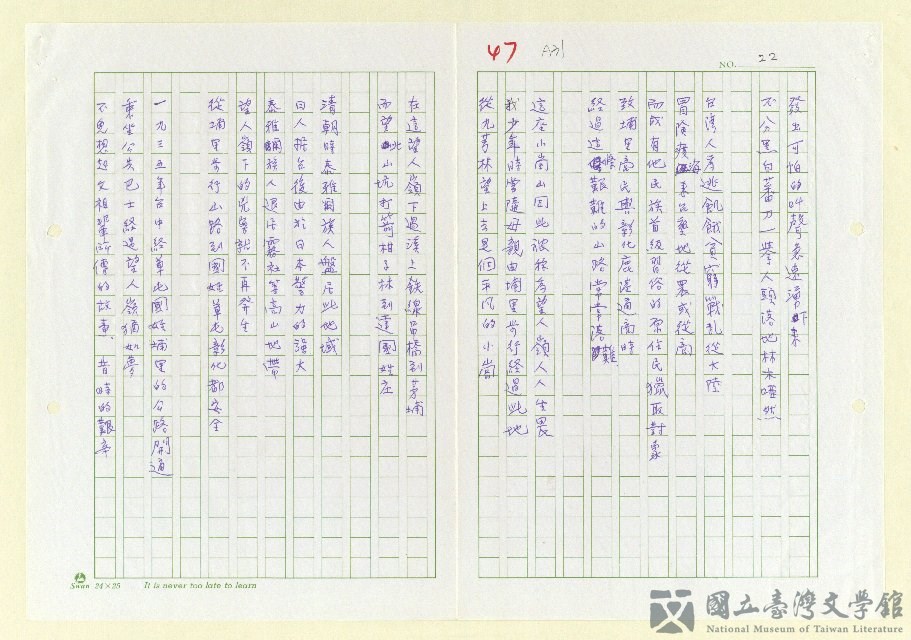 47 A31
NO. 22
發出可怕的叫聲急速湧上來
不分黑白蕃刀一舉人頭落地林木嘩然
台灣人為逃飢餓貧窮戰亂從大陸
冒險渡海來此墾地從農或從商
而成有他民族首級習俗的原住民獵取對象
致埔里高民與彰化鹿港通商時
路過這條艱難的山路常常落難
這座小崗山因此被称為望人嶺人人生畏
我少年時常隨母親由埔里步行經過此地
從九芎林望上去是個平凡的小崗
在這望人嶺下過溪之鉄線吊橋到芳埔
而望北山坑打筍柑子林到達國姓庄
清朝時泰雅爾族人盤居此地域
日人據台後由於日本警力的強大
泰雅爾族人退居霧社等高山地帶
望人嶺下的兇番就不再發生
從埔里步行山路到國姓草屯彰化都安全
一九三五年台中經草屯國姓埔里的公路開通
乘坐公共巴士経過望人嶺猶如夢
不免想起父祖輩所傳的故事、昔時的艱辛
Swan 24×25 It is never too late to learn
國立臺灣文學館
National Museum of Taiwan Literature